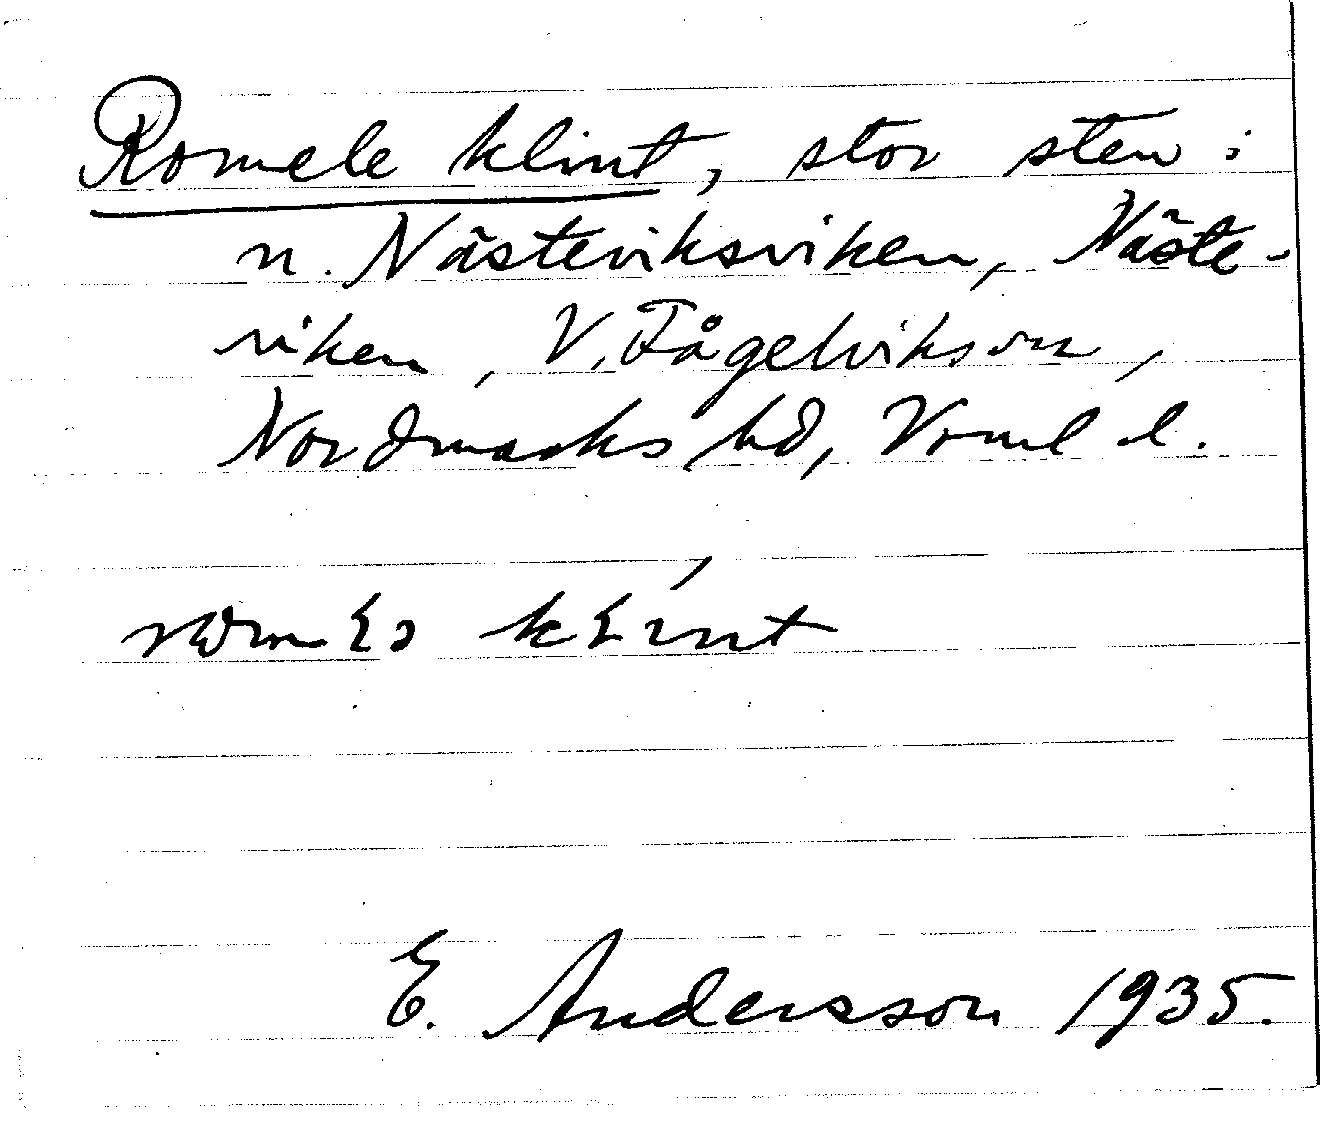 Romele klint, stor sten i
n. Nästeviksviken, Näste-
viken, V. Fågelvikson,
Nordmarks hd, Vrml l.
klint
E. Andersson 1935.